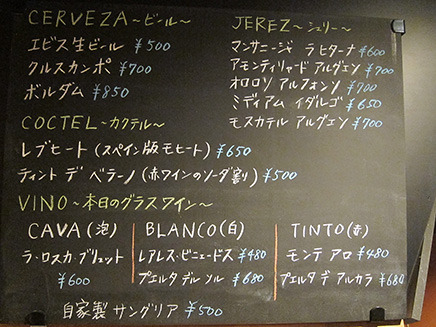 CERVEZA～ビール～
エビス生ビール ¥500
クルスカンポ ¥700
ボルダム ¥850
JEREZ～シェリー～
マンサニージャ ラ ヒターナ ¥600
アモンティリャード アルグェソ ¥700
オロロソ アルフォンソ ¥700
ミディアム イダルゴ ¥650
モスカテル アルグェソ ¥700
COCTEL～カクテル～
レブヒート(スペイン版モヒート) ¥650
ティント デ ベラーノ(赤ワインのソーダ割) ¥500
VINO～本日のグラスワイン～
CAVA(泡)
ラ・ロスカ ブリュット
¥600
BLANCO(白)
レアレス・ビニャードス ¥480
プエルタ デル ソル ¥680
TINTO(赤)
モンテ アロ ¥480
プエルタ デ アルカラ ¥680
自家製 サングリア ¥500